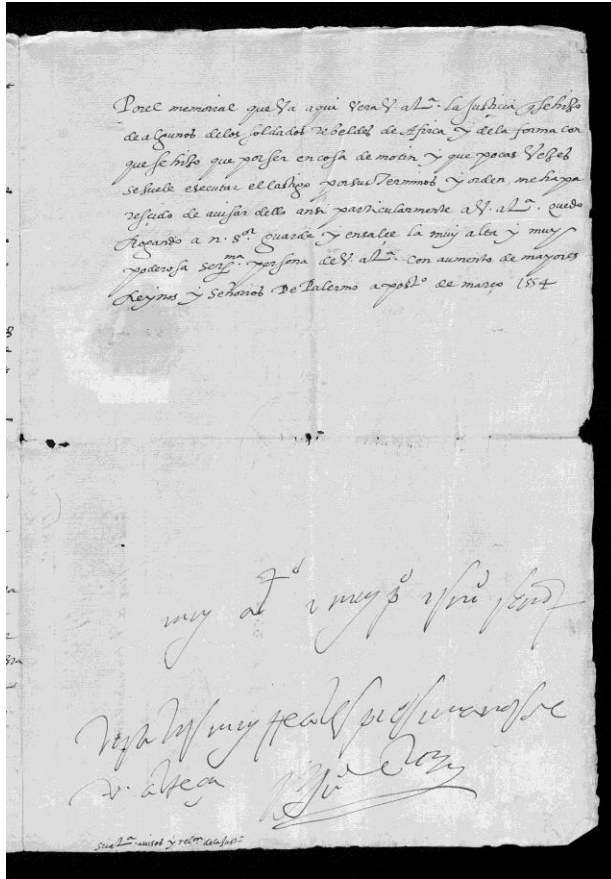 Porel memorial que Va aqui Vera V. alt.ª la Justicia q se hizo
de algunos delos soldados rebeldes de Africa y dela forma con
que se hizo que por ser en cosa de motin y que pocas Vezes
se suele executar el castigo por sus Terminos y orden, me ha pa
resçido de auisar dello ansi particularmente a V. alt.ª quedo
Rogando a n. s.or guarde y ensalçe la muy alta y muy
poderosa ser.ma persona de V. alt.ª con aumento de mayores
Reynos y Señorios De Palermo a post.o de março 1554
muy al.to y muy p.o
besa los muy Reales pies y manos de
v. alteza Ju.o de Vega
su alt.ª auisos y rel.on dela